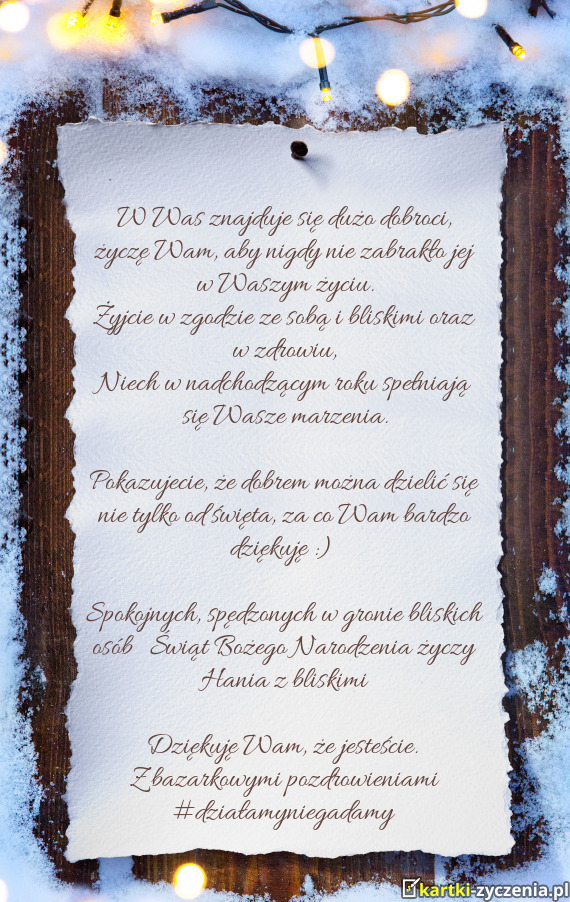 W Was znajduje się dużo dobroci,
życzę Wam, aby nigdy nie zabrakło jej
w Waszym życiu.
Żyjcie w zgodzie ze sobą i bliskimi oraz
w zdrowiu,
Niech w nadchodzącym roku spełniają
się Wasze marzenia.

Pokazujecie, że dobrem można dzielić się
nie tylko od święta, za co Wam bardzo
dziękuję :)

Spokojnych, spędzonych w gronie bliskich
osób Świąt Bożego Narodzenia życzy
Hania z bliskimi

Dziękuję Wam, że jesteście.
Z bazarkowymi pozdrowieniami
#działamyniegadamy
kartki-zyczenia.pl